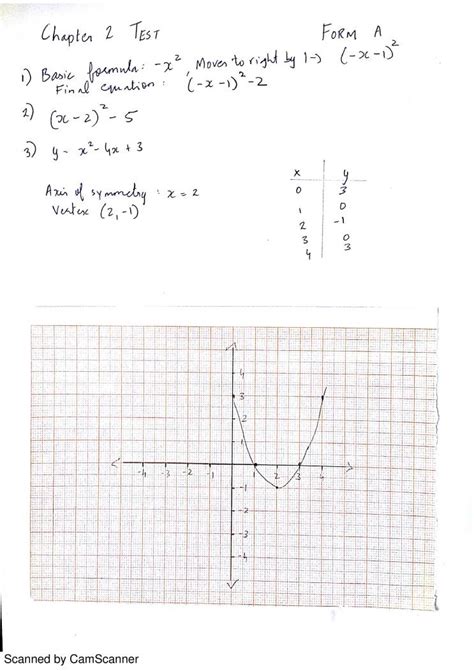 Chapter 2 TEST FORM A
1) Basic formula: -x², Moves to right by 1 → (-x-1)²
Final equation: (-x-1)²-2
2) (x-2)²-5
3) y = x²-4x+3
Axis of symmetry: x = 2
Vertex (2,-1)
x y
0 3
1 0
2 -1
3 0
4 3
4
3
2
1
-4 -3 -2 -1 1 2 3 4
-1
-2
-3
-4
Scanned by CamScanner